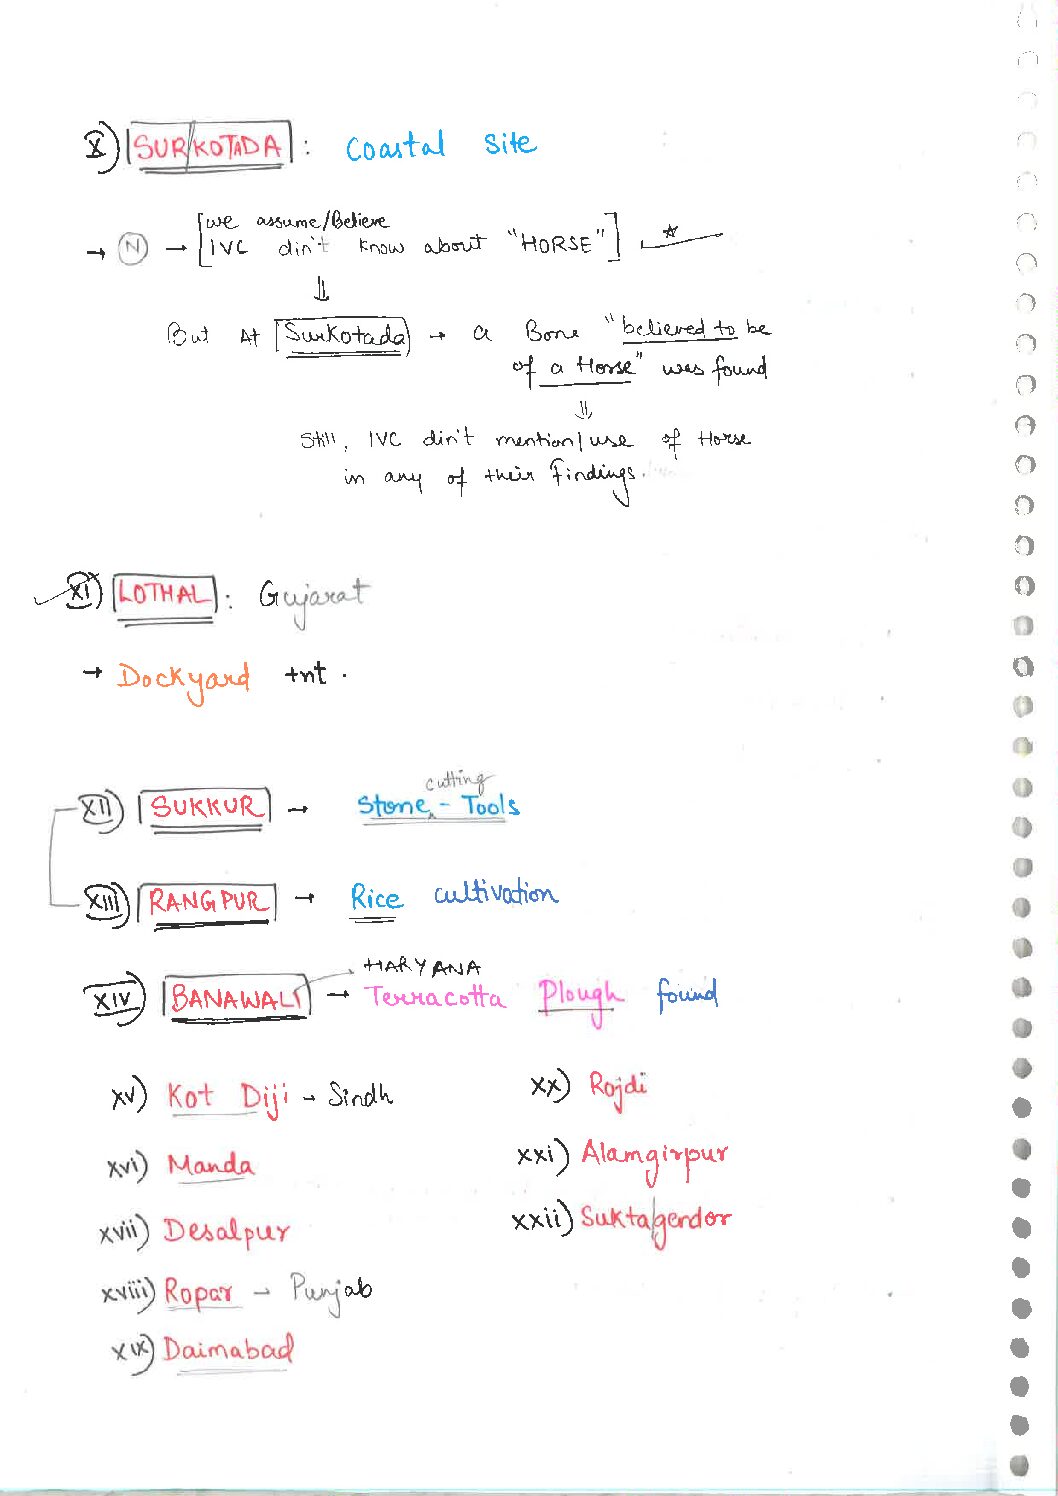 X) SURKOTADA : Coastal Site
→ N → [we assume/Believe
IVC din't know about "HORSE"]
⇓
But At Surkotada → a Bone "believed to be
of a Horse" was found
⇓
Still, IVC din't mention/use of Horse
in any of their findings.
XI) LOTHAL : Gujarat
→ Dockyard +nt .
cutting
XII) SUKKUR → Stone - Tools
XIII) RANGPUR → Rice cultivation
HARYANA
XIV) BANAWALI → Terracotta Plough found
xv) Kot Diji → Sindh
xvi) Manda
xvii) Desalpur
xviii) Ropar → Punjab
xix) Daimabad
xx) Rojdi
xxi) Alamgirpur
xxii) Sukta/gendor